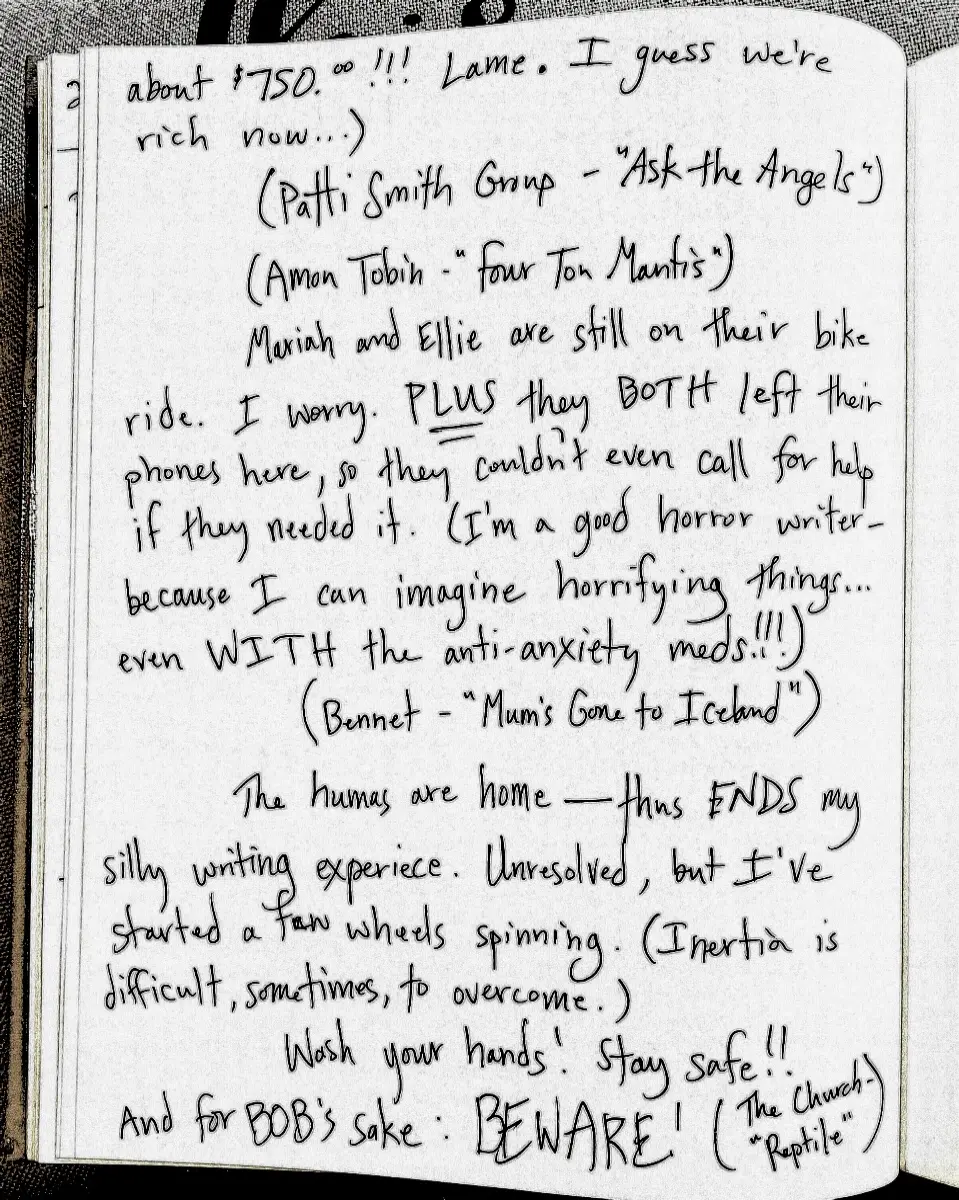 about $750.00 !!! Lame. I guess we're
rich now...)
(Patti Smith Group - "Ask the Angels")
(Amon Tobin - "Four Ton Mantis")
Mariah and Ellie are still on their bike
ride. I worry. PLUS they BOTH left their
phones here, so they couldn't even call for help
if they needed it. (I'm a good horror writer-
because I can imagine horrifying things...
even WITH the anti-anxiety meds!!!)
(Bennet - "Mum's Gone to Iceland")
The humas are home — thus ENDS my
silly writing experiece. Unresolved, but I've
started a few wheels spinning. (Inertia is
difficult, sometimes, to overcome.)
Wash your hands! Stay safe!!
And for BOB's sake: BEWARE! (The Church-
"Reptile")